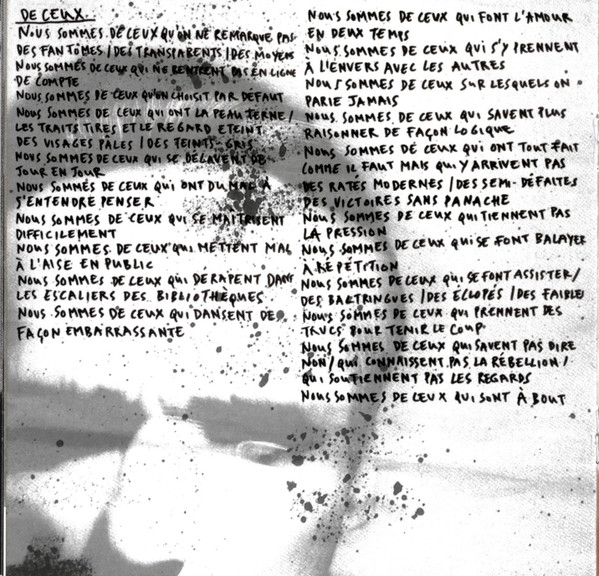 DE CEUX.
NOUS SOMMES DE CEUX QU'ON NE REMARQUE PAS
DES FANTÔMES / DES TRANSPARENTS / DES MOYENS
NOUS SOMMES DE CEUX QUI NE RENTRENT PAS EN LIGNE
DE COMPTE
NOUS SOMMES DE CEUX QU'ON CHOISIT PAR DÉFAUT
NOUS SOMMES DE CEUX QUI ONT LA PEAU TERNE /
LES TRAITS TIRÉS ET LE REGARD ÉTEINT
DES VISAGES PÂLES / DES TEINTS GRIS
NOUS SOMMES DE CEUX QUI SE DÉLAVENT DE
JOUR EN JOUR
NOUS SOMMES DE CEUX QUI ONT DU MAL À
S'ENTENDRE PENSER
NOUS SOMMES DE CEUX QUI SE MAITRISENT
DIFFICILEMENT
NOUS SOMMES DE CEUX QUI METTENT MAL
À L'AISE EN PUBLIC
NOUS SOMMES DE CEUX QUI DÉRAPENT DANS
LES ESCALIERS DES BIBLIOTHÈQUES
NOUS SOMMES DE CEUX QUI DANSENT DE
FAÇON EMBARRASSANTE
NOUS SOMMES DE CEUX QUI FONT L'AMOUR
EN DEUX TEMPS
NOUS SOMMES DE CEUX QUI S'Y PRENNENT
À L'ENVERS AVEC LES AUTRES
NOUS SOMMES DE CEUX SUR LESQUELS ON
PARIE JAMAIS
NOUS SOMMES DE CEUX QUI SAVENT PLUS
RAISONNER DE FAÇON LOGIQUE
NOUS SOMMES DE CEUX QUI ONT TOUT FAIT
COMME IL FAUT MAIS QUI Y ARRIVENT PAS
DES RATÉS MODERNES / DES SEMI-DÉFAITES
DES VICTOIRES SANS PANACHE
NOUS SOMMES DE CEUX QUI TIENNENT PAS
LA PRESSION
NOUS SOMMES DE CEUX QUI SE FONT BALAYER
À RÉPÉTITION
NOUS SOMMES DE CEUX QUI SE FONT ASSISTER /
DES BALTRINGUES / DES ÉCLOPÉS / DES FAIBLES
NOUS SOMMES DE CEUX QUI PRENNENT DES
TRUCS POUR TENIR LE COUP
NOUS SOMMES DE CEUX QUI SAVENT PAS DIRE
NON / QUI CONNAISSENT PAS LA RÉBELLION /
QUI SOUTIENNENT PAS LES REGARDS
NOUS SOMMES DE CEUX QUI SONT À BOUT